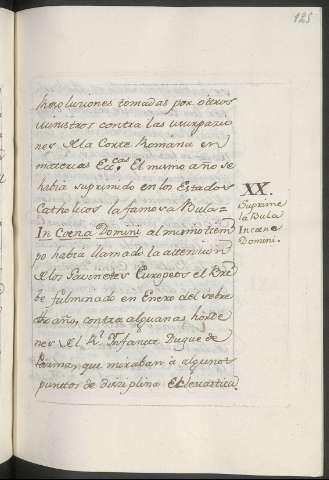 125
soluciones tomadas por otros
ministros contra las usurpacio
nes de la Corte Romana en
materias Ecc.cas El mismo año se
habia suprimido en los Estados
Catholicos la famosa Bula =
In Coena Domini al mismo tiem
po habia llamado la attencion
de los Gavinetes Europeos el Bre
be fulminado en Enero del
año, contra algunas horde
nes del R.l Infante Duque de
Parma, que miraban à algunos
puntos de disciplina Eclesiastica
XX.
Suprime
la Bula
In cæna
Domini.